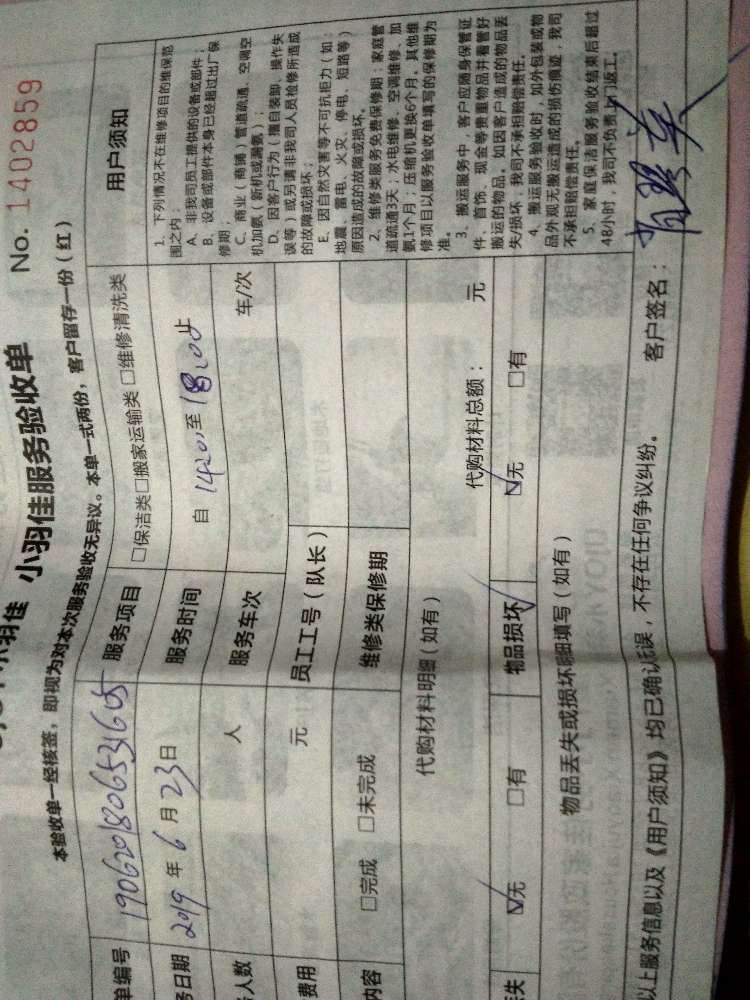 小羽佳 小羽佳服务验收单 No. 1402859
本验收单一经核签，即视为对本次服务验收无异议。本单一式两份，客户留存一份（红）
单编号 1906201806531605 服务项目 □保洁类□搬家运输类 □维修清洗类
务日期 2019 年 6 月 23 日 服务时间 自 14:20 至 18:00 止
务人数 人 服务车次 车/次
费用 元 员工工号（队长）
内容 □完成 □未完成 维修类保修期
代购材料明细（如有） 代购材料总额： 元
丢失 ☑无 □有 物品损坏 ☑无 □有
物品丢失或损坏明细填写（如有）
用户须知
1、下列情况不在维修项目的维保范
围之内：
A、非我司员工提供的设备或部件；
B、设备或部件本身已经超过出厂保
修期；
C、商业（商铺）管道疏通、空调空
机加氨（新机或漏氨）；
D、因客户行为（擅自装卸、操作失
误等）或另请非我司人员检修所造成
的故障或损坏；
E、因自然灾害等不可抗拒力（如：
地震、雷电、火灾、停电、短路等）
原因造成的故障或损坏。
2、维修类服务免费保修期：家庭管
道疏通3天；水电维修、空调维修、加
氨1个月；压缩机更换6个月。其他维
修项目以服务验收单填写的保修期为
准。
3、搬运服务中，客户应随身保管证
件、首饰、现金等贵重物品并看管好
搬运的物品。如因客户造成的物品丢
失/损坏，我司不承担赔偿责任。
4、搬运服务验收时，如外包装或物
品外观无搬运造成的损伤痕迹，我司
不承担赔偿责任。
5、家庭保洁服务验收结束后超过
48小时，我司不负责上门返工。
以上服务信息以及《用户须知》均已确认无误，不存在任何争议纠纷。 客户签名：